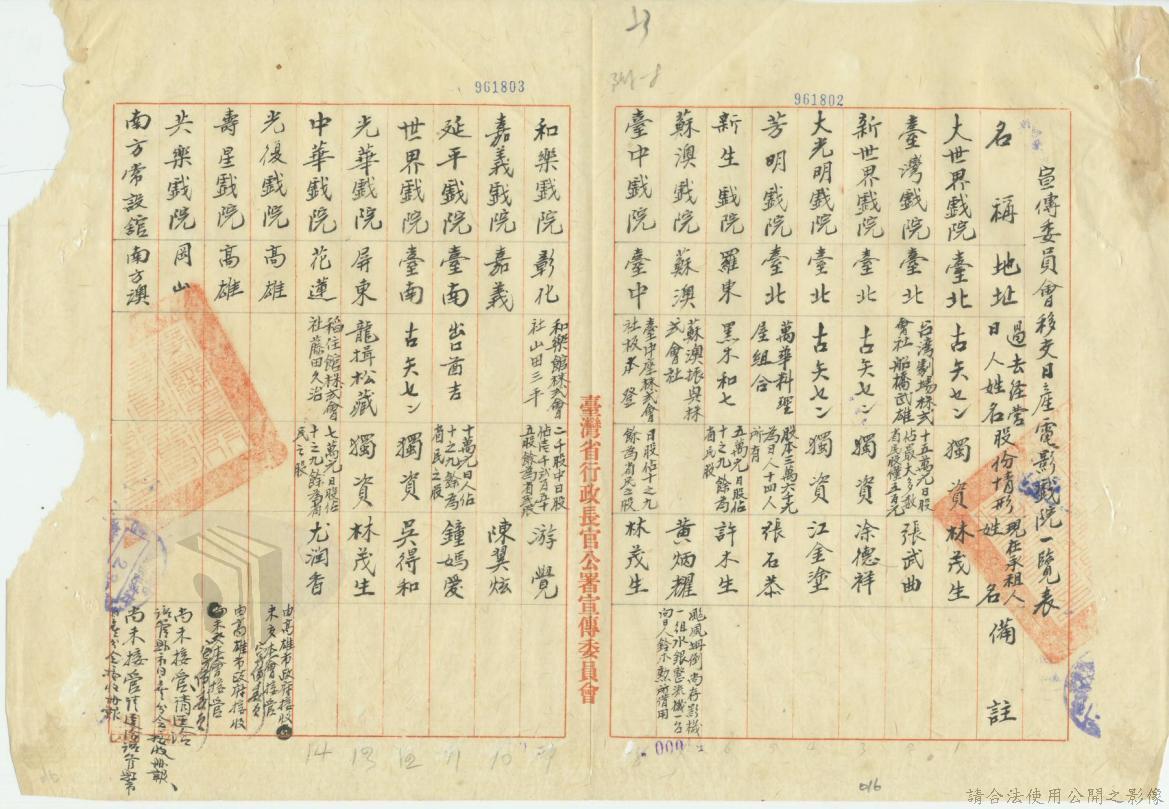 961803
961802
宣傳委員會移交日產電影戲院一覽表
名稱 地址 過去經營日人姓名 股份情形 現在承租人姓名 備註
大世界戲院 臺北 古矢セン 獨資 林茂生
臺灣戲院 臺北 台湾劇場株式會社船橋武雄 十五萬元日股佔最大多数省民股僅五百元 張武曲
新世界戲院 臺北 古矢セン 獨資 涂德祥
大光明戲院 臺北 古矢セン 獨資 江金塗
芳明戲院 臺北 萬華料理屋組合 股本三萬六千元為日人十四人所有 張石恭
新生戲院 羅東 黑木和七 五萬元日股佔十之九餘為省民股 許木生
蘇澳戲院 蘇澳 蘇澳振興株式會社 黃炳耀 颱風坍倒尚存影機一組水銀整流機一台向日人鈴木勲所借用
臺中戲院 臺中 臺中座株式會社坂本登 日股佔十之九餘為省民之股 林茂生
臺灣省行政長官公署宣傳委員會
和樂戲院 彰化 和樂館株式會社山田三平 二千股中日股佔壹千 五股餘為省民股 游覺
嘉義戲院 嘉義 陳翼炫
延平戲院 臺南 出口酉吉 十萬元日人佔十之九餘為省民之股 鐘媽愛
世界戲院 臺南 古矢セン 獨資 吳得和
光華戲院 屏東 龍揖松藏 獨資 林茂生
中華戲院 花蓮 稻住館株式會社藤田久治 七萬元日股佔十之九餘為省民之股 尤潤香
光復戲院 高雄 由高雄市政府接收未交本會接管
壽星戲院 高雄 由高雄市政府接收未交本會接管
共樂戲院 岡山 尚未接管請逕令該管縣市
南方常設舘 南方澳 尚未接管請逕該管縣
14 13 12 11 10 9
000
016
請合法使用公開之影像